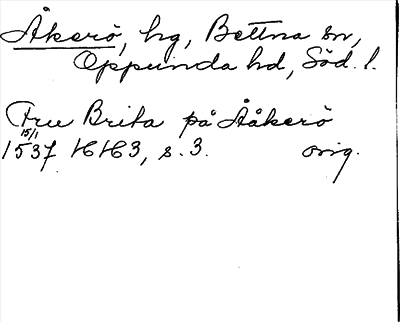 Åkerö, hg, Bettna sn,
Oppunda hd, Söd. l.
Fru Brita på Ååkerö
15/1
1537 HH3, s. 3. orig.